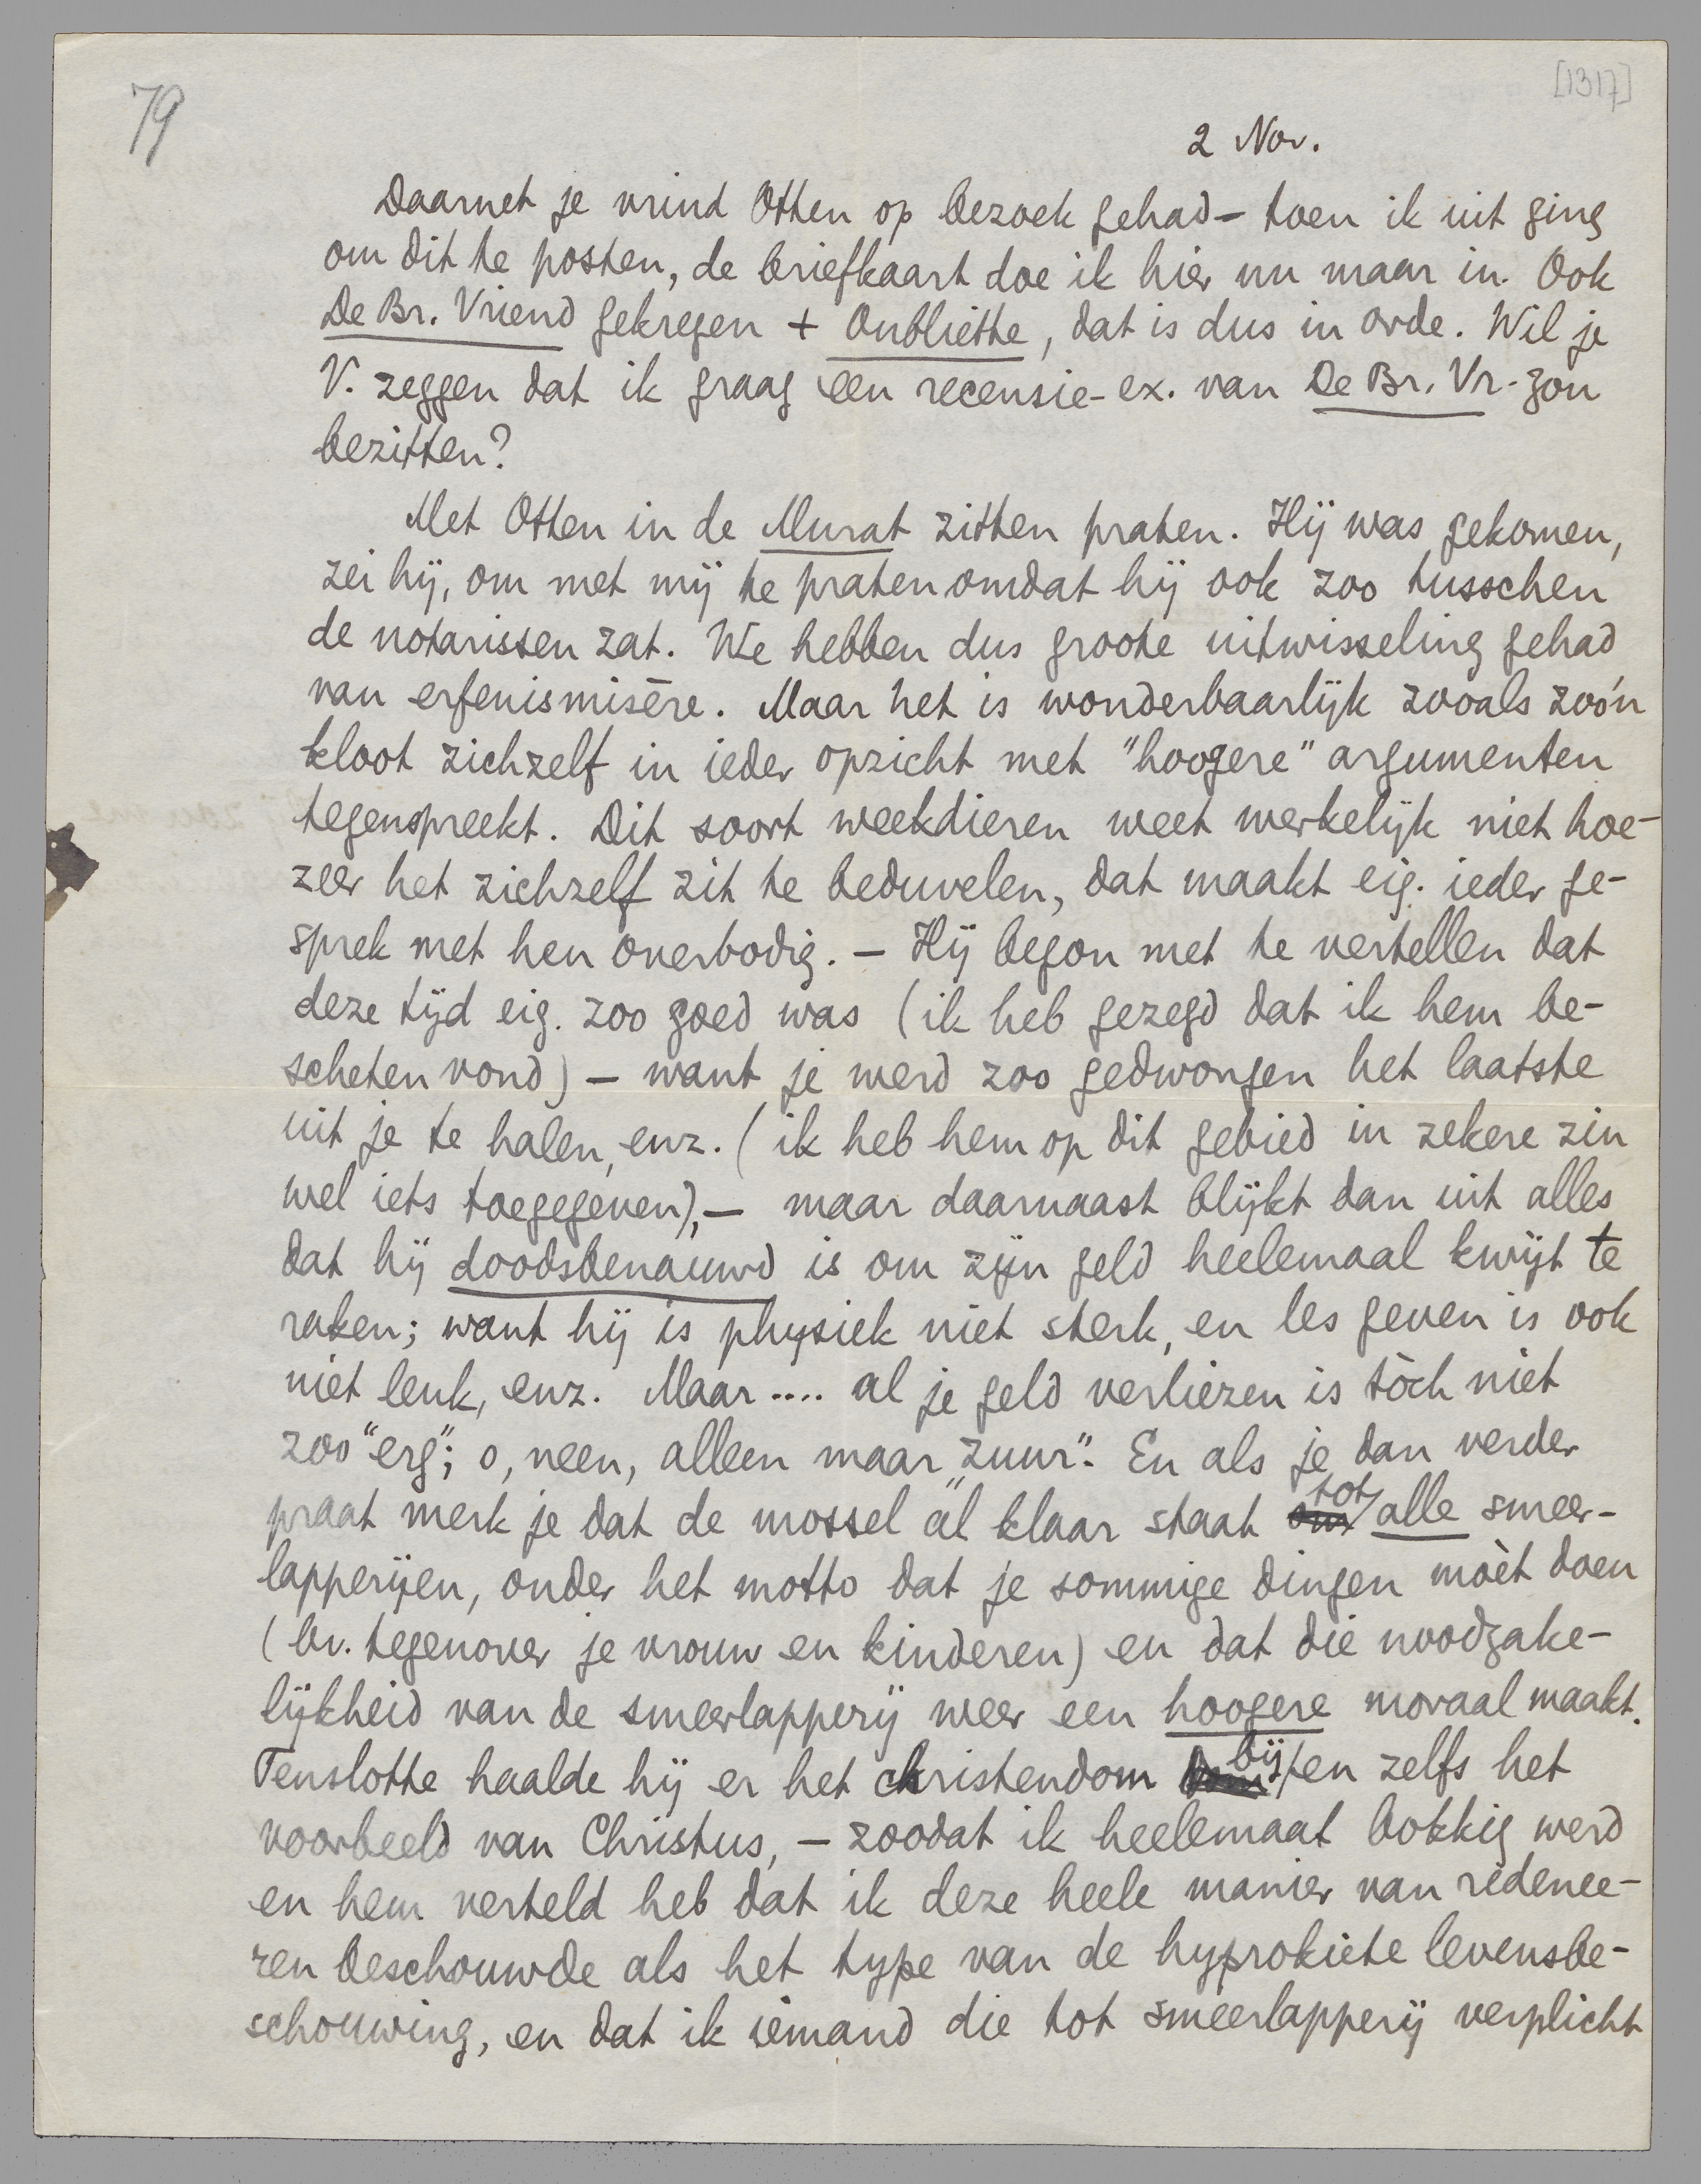 79
[1317]
2 Nov.
Daarnet je vrind Otten op bezoek gehad – toen ik uit ging
om dit te posten, de briefkaart doe ik hier nu maar in. Ook
De Br. Vriend gekregen + Oubliette, dat is dus in orde. Wil je
V. zeggen dat ik graag een recensie-ex. van De Br. Vr. zou
bezitten?
Met Otten in de Murat zitten praten. Hij was gekomen,
zei hij, om met mij te praten omdat hij ook zoo tusschen
de notarissen zat. We hebben dus groote uitwisseling gehad
van erfenismisère. Maar het is wonderbaarlijk zooals zoo'n
kloot zichzelf in ieder opzicht met "hoogere" argumenten
tegenspreekt. Dit soort weekdieren weet werkelijk niet hoe-
zeer het zichzelf zit te beduvelen, dat maakt eig. ieder ge-
sprek met hen overbodig. – Hij begon met te vertellen dat
deze tijd eig. zoo goed was (ik heb gezegd dat ik hem be-
scheten vond) – want je werd zoo gedwongen het laatste
uit je te halen, enz. (ik heb hem op dit gebied in zekere zin
wel iets toegegeven), – maar daarnaast blijkt dan uit alles
dat hij doodsbenauwd is om zijn geld heelemaal kwijt te
raken; want hij is physiek niet sterk, en les geven is ook
niet leuk, enz. Maar .... al je geld verliezen is tòch niet
zoo "erg"; o, neen, alleen maar "zuur". En als je dan verder
praat merk je dat de mossel àl klaar staat om tot alle smeer-
lapperijen, onder het motto dat je sommige dingen mòèt doen
(bv. tegenover je vrouw en kinderen) en dat die noodzake-
lijkheid van de smeerlapperij weer een hoogere moraal maakt.
Tenslotte haalde hij er het christendom bij en zelfs het
voorbeeld van Christus, – zoodat ik heelemaal bokkig werd
en hem verteld heb dat ik deze heele manier van redenee-
ren beschouwde als het type van de hyprokiete levensbe-
schouwing, en dat ik iemand die tot smeerlapperij verplicht